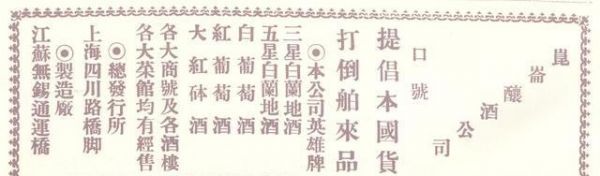 崑崙釀酒公司
口號
提倡本國貨
打倒舶來品
◉本公司英雄牌
三星白蘭地酒
五星白蘭地酒
白葡萄酒
紅葡萄酒
大紅砵酒
各大商號及各酒樓
各大菜館均有經售
◉總發行所
上海四川路橋脚
◉製造廠
江蘇無錫通運橋